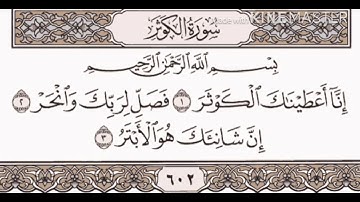 Made with KINEMASTER
سُورَةُ الكَوْثَرِ
بِسْمِ اللَّهِ الرَّحْمَٰنِ الرَّحِيمِ
إِنَّآ أَعْطَيْنَٰكَ ٱلْكَوْثَرَ ١ فَصَلِّ لِرَبِّكَ وَٱنْحَرْ ٢
إِنَّ شَانِئَكَ هُوَ ٱلْأَبْتَرُ ٣
٦٠٢